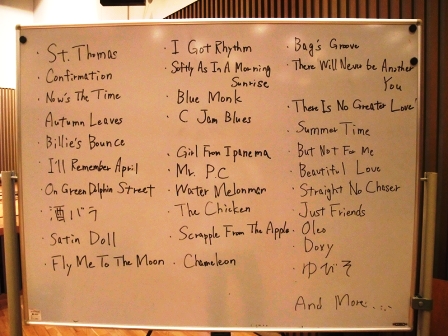 · St. Thomas
· Confirmation
· Now's The Time
· Autumn Leaves
· Billie's Bounce
· I'll Remember April
· On Green Dolphin Street
· 酒バラ
· Satin Doll
· Fly Me To The Moon
· I Got Rhythm
· Softly As In A Morning
Sunrise
· Blue Monk
· C Jam Blues
· Girl From Ipanema
· Mr. P.C
· Water Melonman
· The Chicken
· Scrapple From The Apple
· Chameleon
· Bag's Groove
· There Will Never be Another
You
· There Is No Greater Love
· Summer Time
· But Not For Me
· Beautiful Love
· Straight No Chaser
· Just Friends
· Oleo
· Doxy
· ゆびそ
And More.....